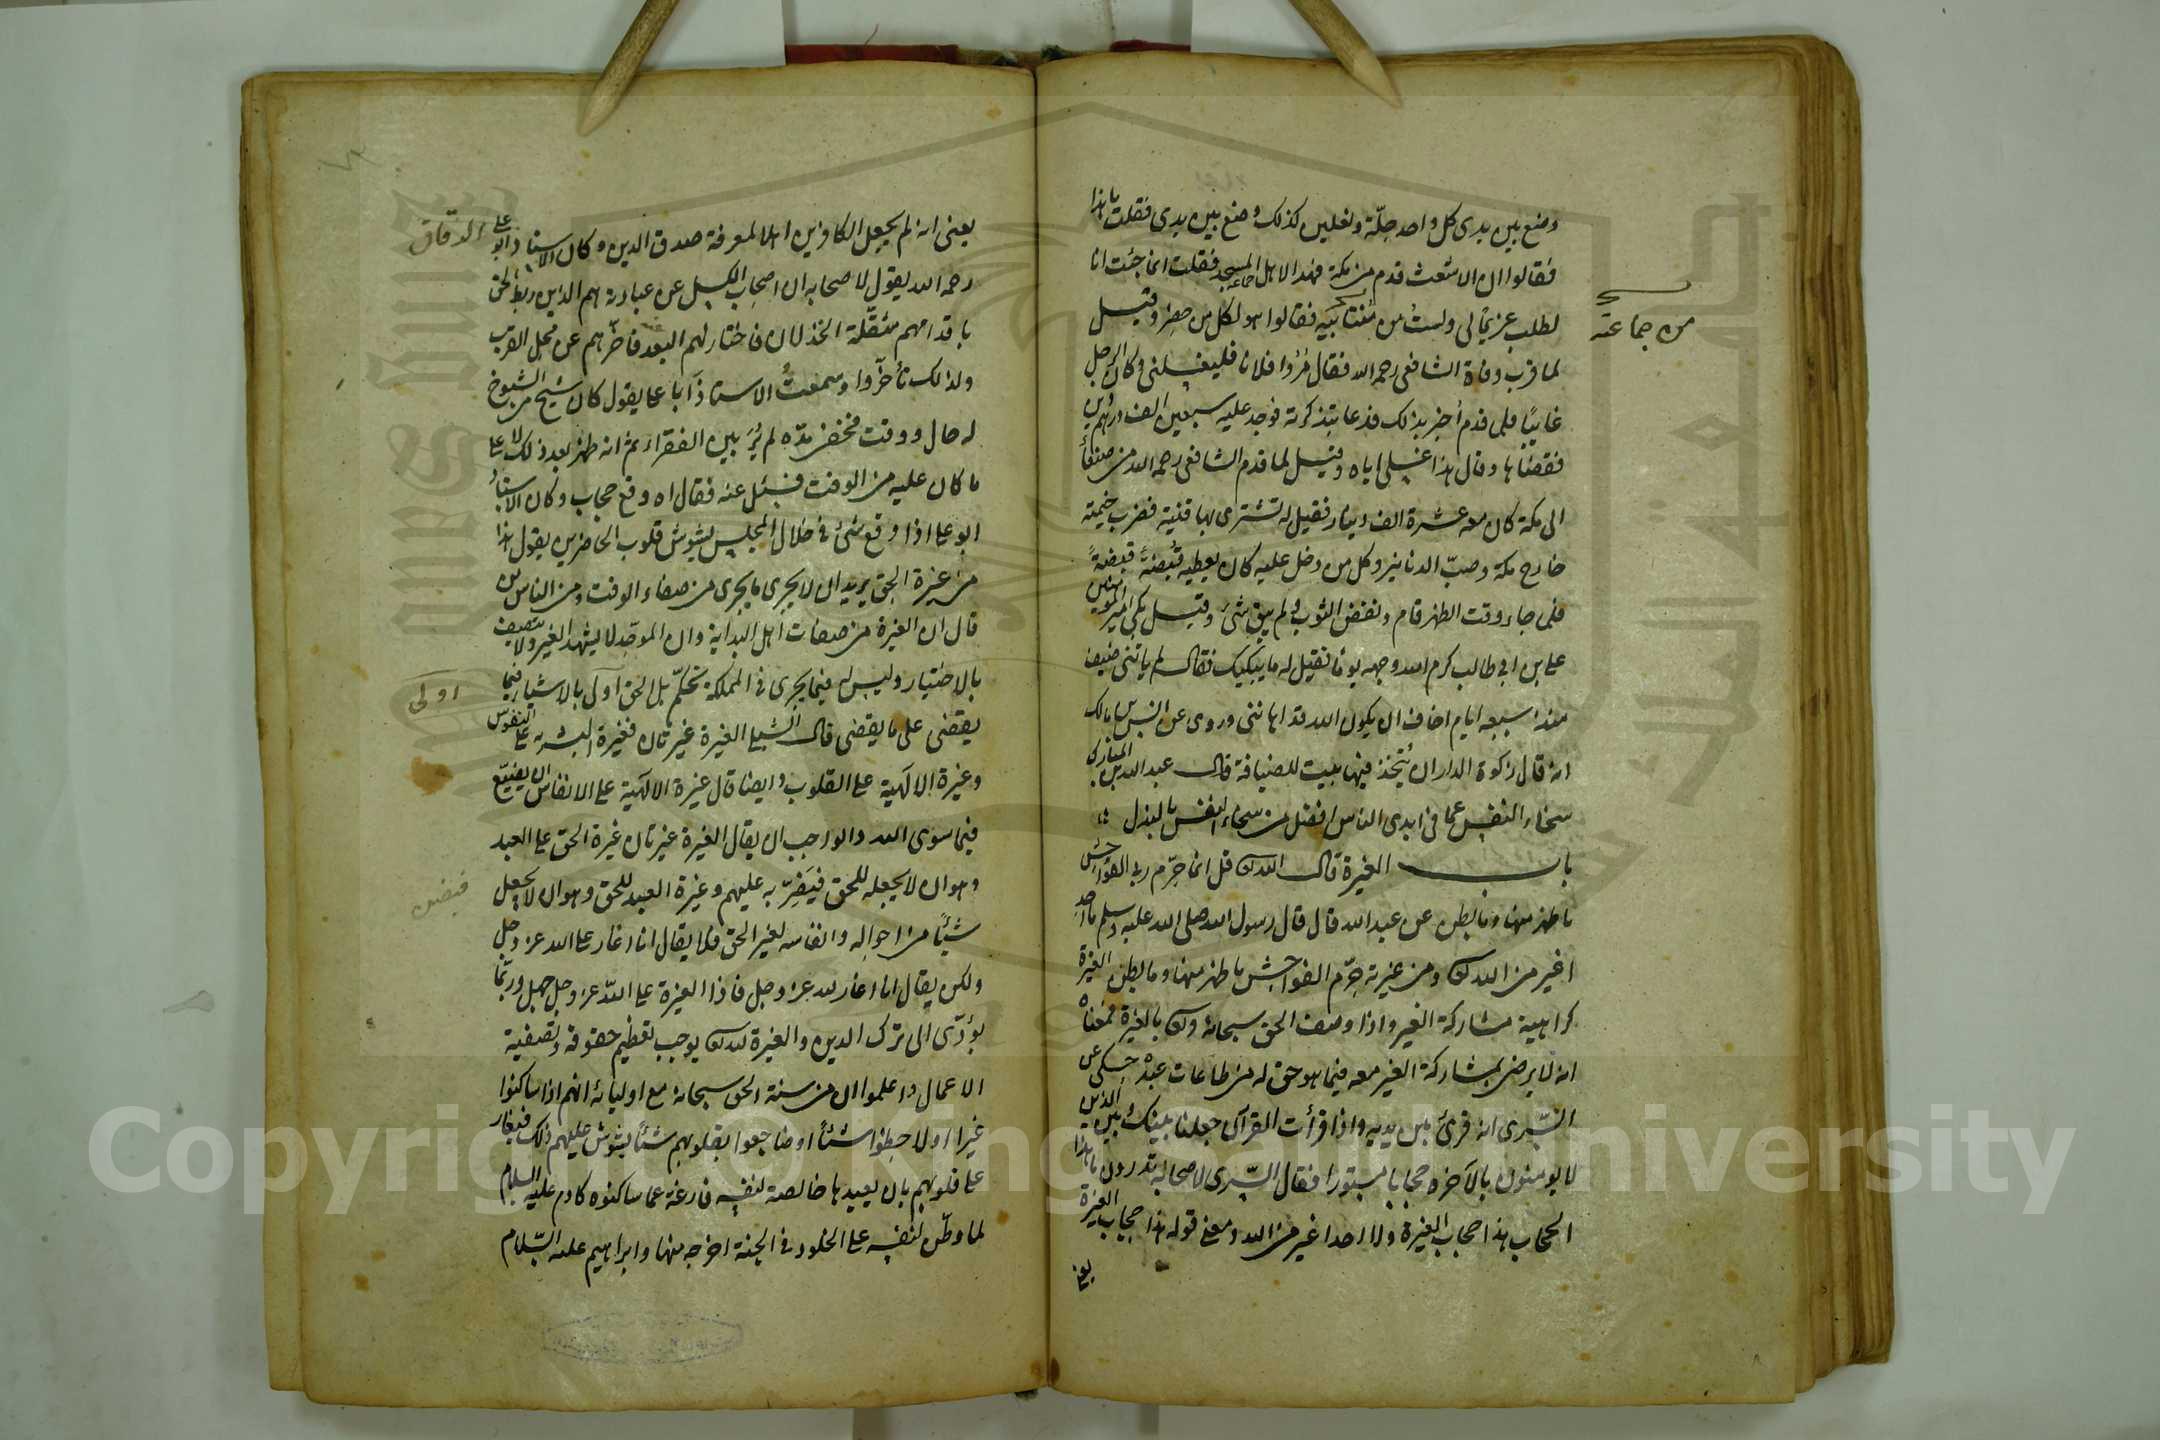 وضع بين يدى كل واحد حلّة ونعلين كذلك وضع بين يدى فقلت ما هذا
فقالوا ان الاشعث قدم من مكة فهذا لاهل جماعة المسجد فقلت انما جئت انا
لطلب غريم لى ولست من فقالوا هو لكل من حضر وقيل
من جماعته
لما قرب وفاة الشافعى رحمه الله فقال مُرُوا فلانا فليغسلنى وكان الرجل
غايبًا فلما قدم أخبر بذلك فدعا بتذكرته فوجد عليه سبعين الف درهم دين
فقضاها وقال هذا غسلى اياه وقيل لما قدم الشافعى رحمه الله من صنعأ
الى مكة كان معه عشرة الف دينار فقيل له تشترى بها قنية فضرب خيمته
خارج مكة وصبّ الدنانير وكل من دخل عليه كان يعطيه قُبضةً قبضةً
فلما جاء وقت الظهر قام ونفض الثوب ولم يبق شئ وقيل بكى امير المؤمنين
على بن ابى طالب كرم الله وجهه يومًا فقيل له ما يبكيك فقال لم ياتنى ضيف
منذ سبعه ايام اخاف ان يكون الله قد اهاننى وروى عن انس بن مالك
انه قال زكوة الدار ان يُتّخذ فيها بيت للضيافة قال عبد الله بن المبارك
سخاء النفس عما فى ايدى الناس افضل من سخاء النفس بالبذل
باب الغيرة قال الله تعالى قل انما حرّم ربى الفواحش
ما ظهر منها وما بطن عن عبد الله قال قال رسول الله صلى الله عليه وسلم ما احد
اغير من الله تعالى ومن غيرته حرّم الفواحش ما ظهر منها وما بطن الغيرة
كراهية مشاركة الغير واذا وصف الحق سبحانه وتعالى بالغيرة فمعناه
انه لا يرضى بمشاركة الغير معه فيما هو حق له من طاعات عبده حكى عن
السّرى انه قرئ بين يديه واذا قرأت القرآن جعلنا بينك وبين الذين
لا يومنون بالآخره حجابا مستورا فقال السّرى لاصحابه تدرون ما هذا
الحجاب هذا حجاب الغيرة ولا احد اغير من الله ومعنى قوله هذا حجاب الغيرة
يعنى
يعنى انه لم يجعل الكافرين اهلا لمعرفة صدق الدين وكان الاستاذ ابو على الدقاق
رحمه الله يقول لاصحابه ان اصحاب الكسل عن عبادته هم الذين ربط الحق
باقدامهم مثقّلة الخذلان فاختار لهم البعد فاخّرهم عن محل القرب
ولذلك تأخّروا وسمعتُ الاستاذ أبا على يقول كان شيخ من الشيوخ
له حال ووقت فخفى مدّه لم يُرَ بين الفقراء ثم انه ظهر بعد ذلك لا على
ما كان عليه من الوقت فسئل عنه فقال اه وقع حجاب وكان الاستاذُ
ابو على اذا وقع شئ فى خلال المجلس يشوش قلوب الحاضرين يقول هذا
من غيرة الحق يريد ان لا يجرى ما يجرى من صفاء الوقت ومن الناس من
قال ان الغيرة من صفات اهل البداية وان الموحّد لا يشهد الغير ولا يتصف
بالاختيار وليس له فيما يجرى فى المملكة تحكّم بل الحق اولى بالاشياء فيما
اولى
يقضى على ما يقضى قال الشبلى الغيرة غيرتان فغيرة البشريه على النفوس
وغيرة الالهية على القلوب وايضا قال غيرة الالهية على الانفاس ان يضيّع
فيما سوى الله والواجب ان يقال الغيرة غيرتان غيرة الحق على العبد
وهو ان لا يجعله للحق فيَضِنّ به عليهم وغيرة العبد للحق وهو ان لا يجعل
فيضن
شيئًا من احواله وانفاسه لغير الحق فلا يقال انا اغار على الله عز وجل
ولكن يقال انا اغار لله عز وجل فاذا الغيرة على اللّه عز وجل جهل وربّما
يؤدّى الى ترك الدين والغيرة لله تعالى يوجب تعظيم حقوقه وتصفية
الاعمال واعلموا ان من سنة الحق سبحانه مع اوليائه انهم اذا ساكنوا
غيرا اولاحظوا شئًا اوضاجعوا بقلوبهم شئًا يشوش عليهم ذلك فيغار
على قلوبهم بان يعيدها خالصة لنفسه فارغة عما ساكنوه كادم عليه السلام
لما وطّن لنفسه على الخلود فى الجنة اخرجه منها وابراهيم عليه السّلام
Copyright © King Saud University